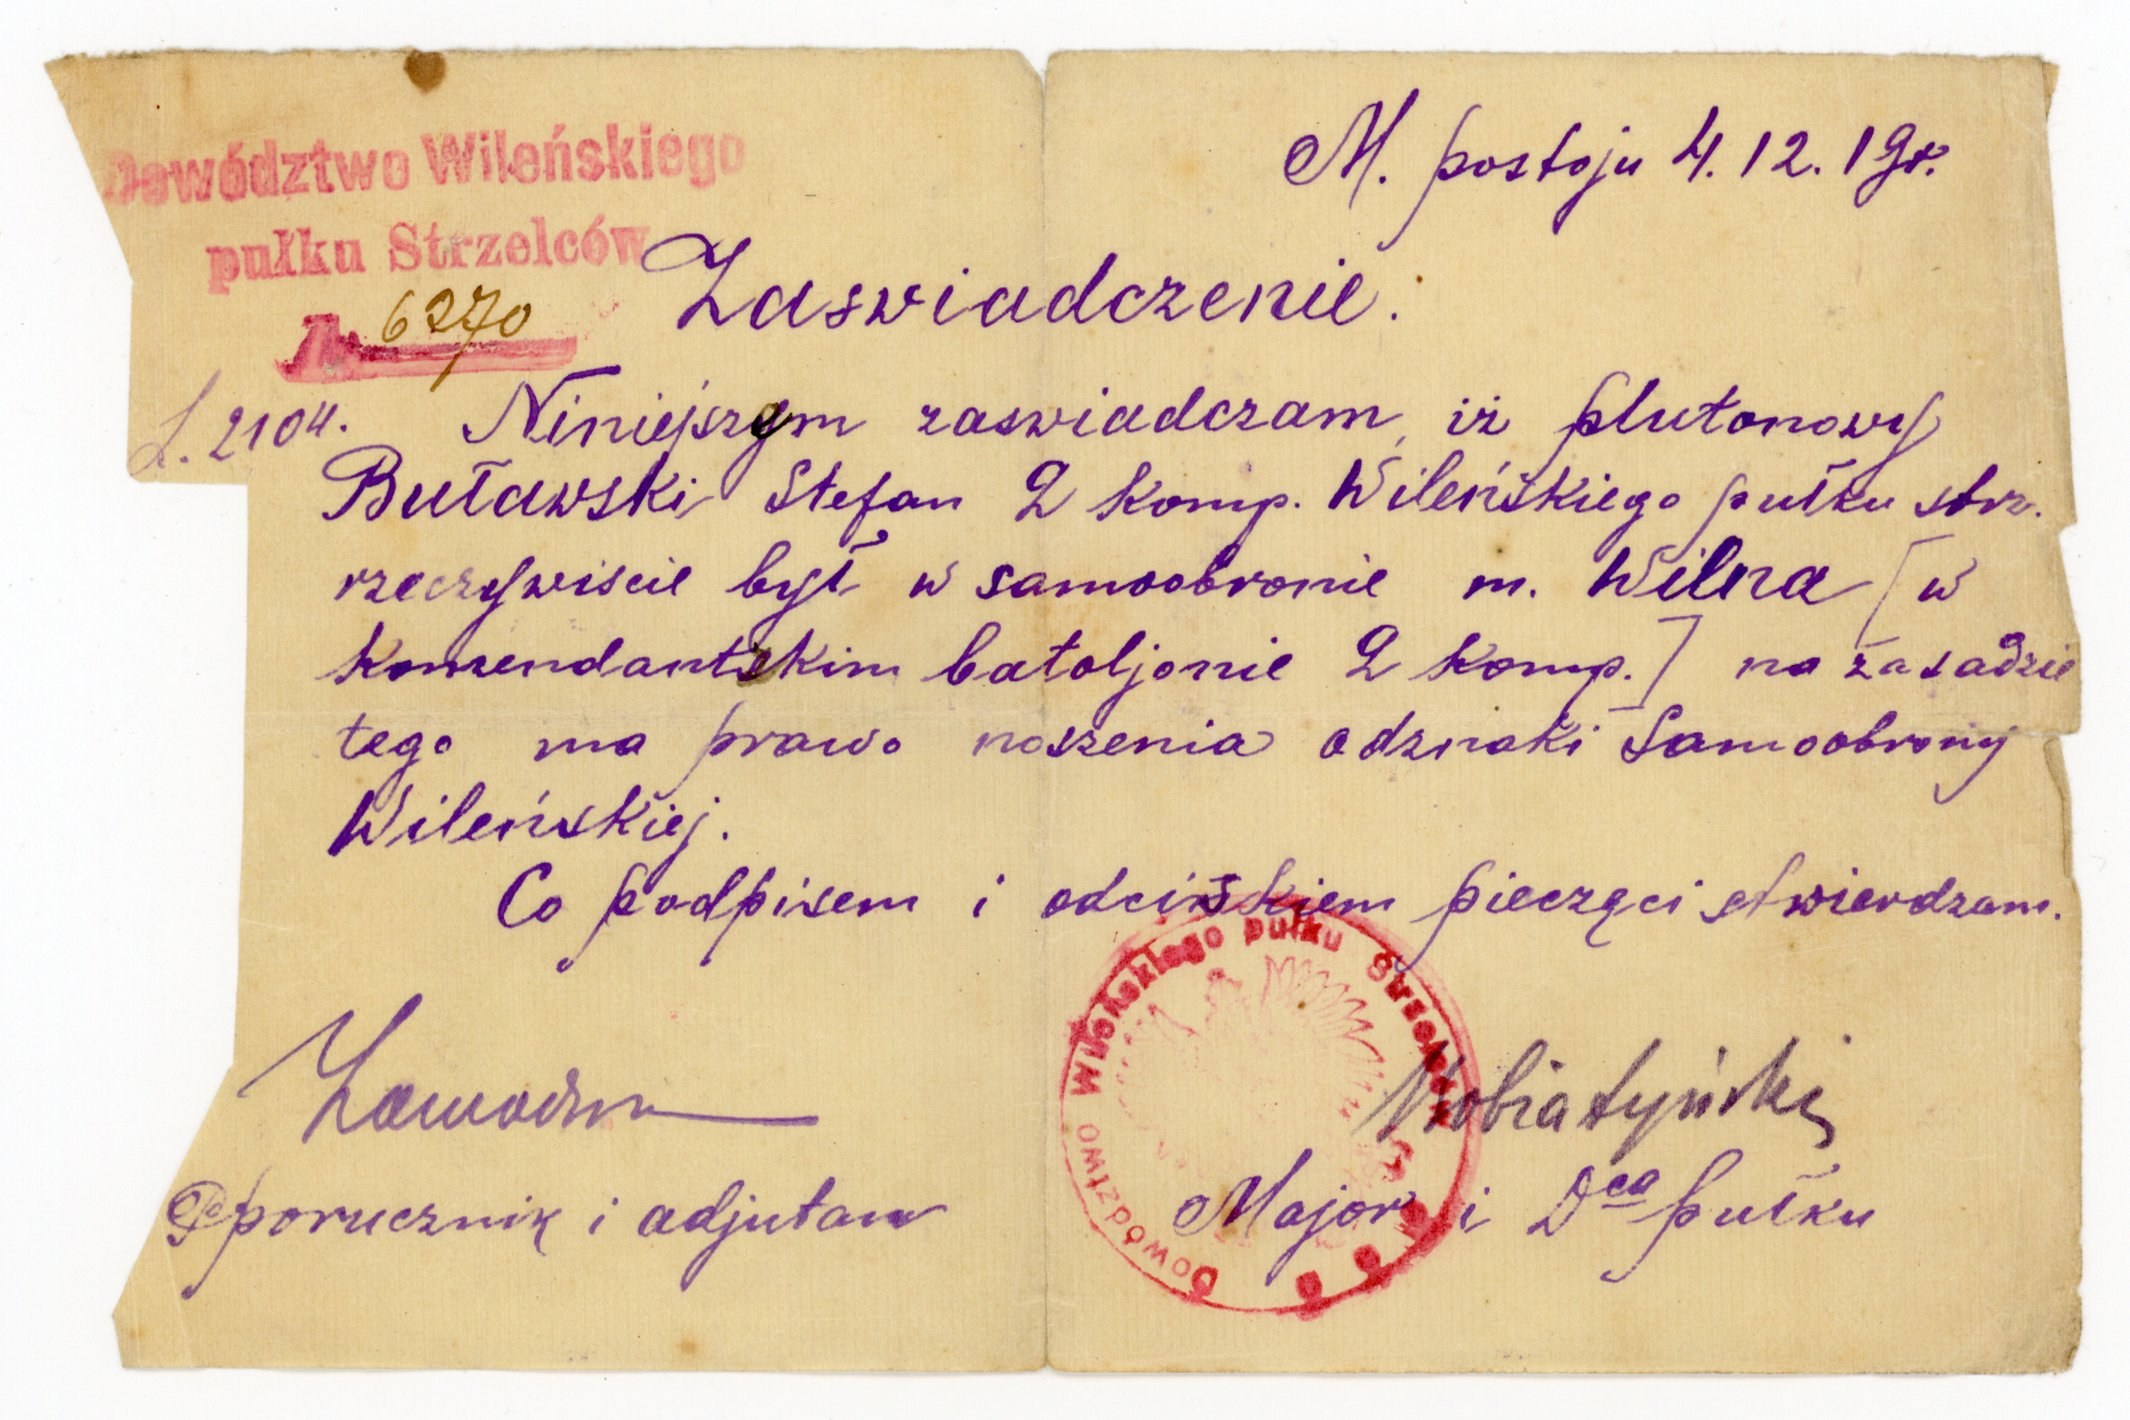 Dowództwo Wileńskiego
pułku Strzelców
№ 6270
M. postoju 4.12.19r.
Zaswiadczenie.
L. 2104.
Niniejszym zaswiadczam, iż plutonowy
Buławski Stefan 2 Komp. Wileńskiego pułku strz.
rzeczywiscie był w samoobronie m. Wilna [w
Komendantskim batoljonie 2 Komp.] na zasadzie
tego ma prawo noszenia odznaki Samoobrony
Wileńskiej.
Co podpisem i odciskiem pieczęci stwierdzam.
Dowództwo Wileńskiego pułku Strzelców
Pporucznik i adjutant
Major i Dca pułku